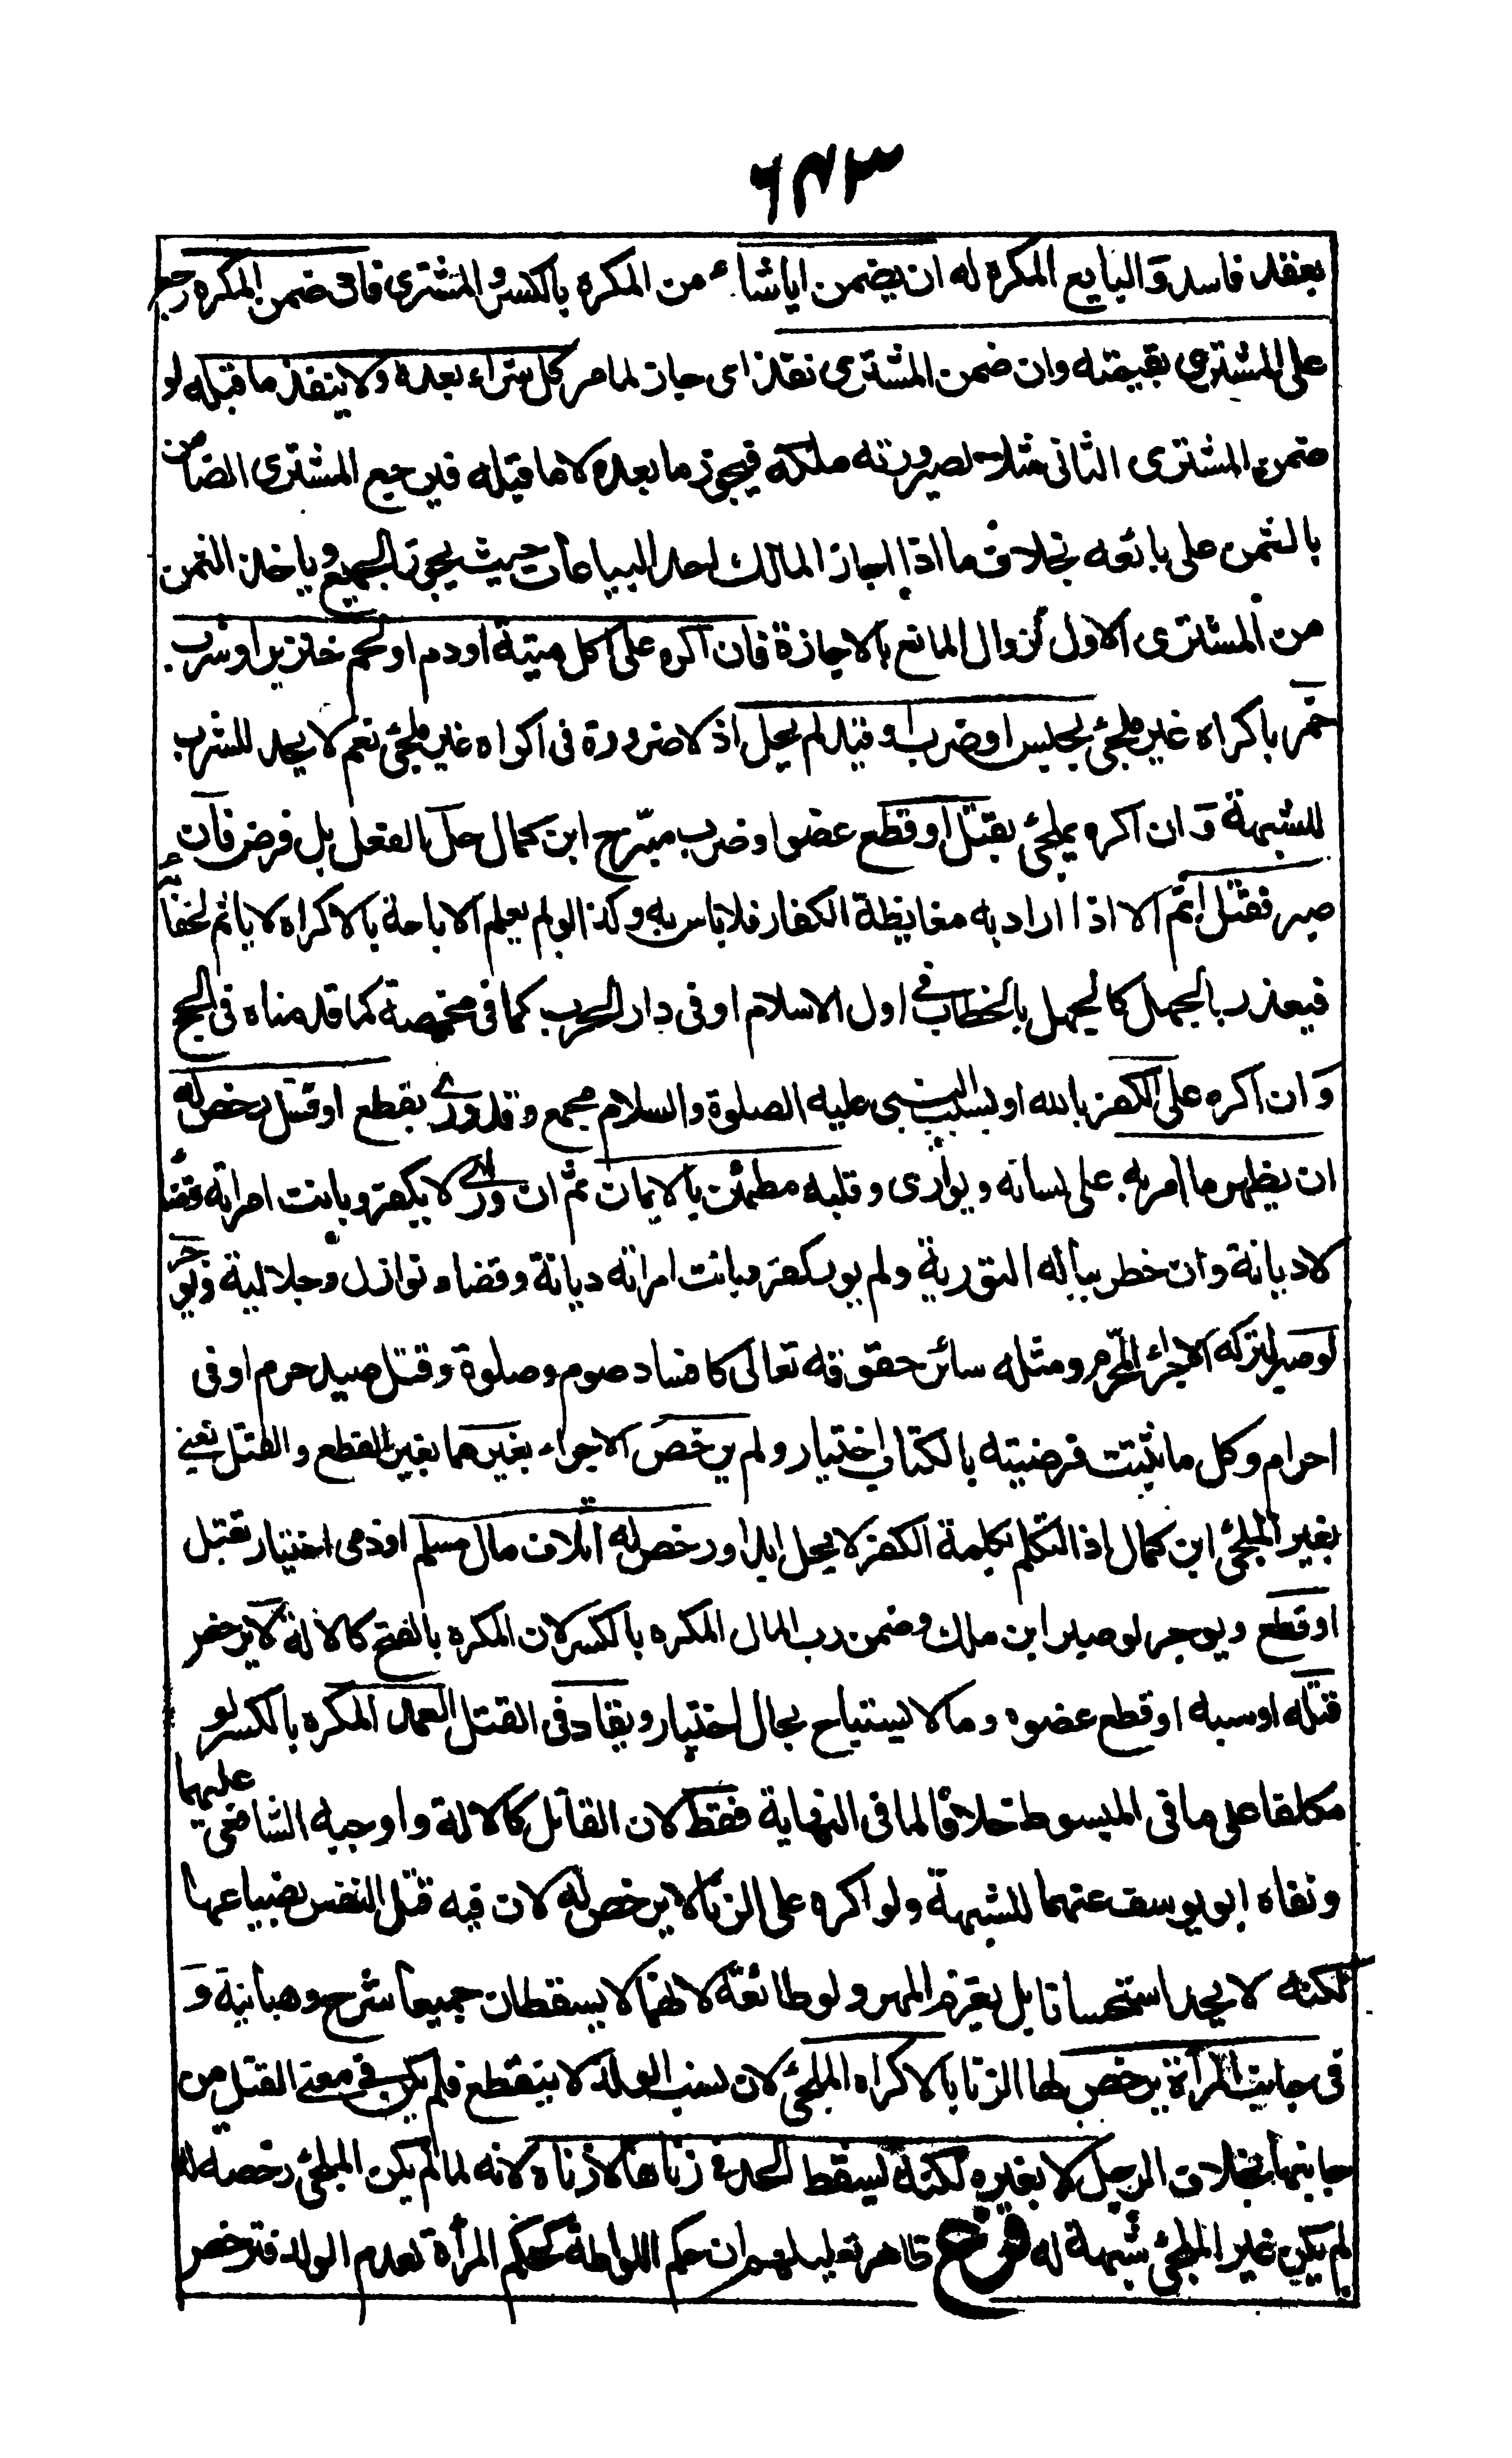 ٦٤٣
بعقد فاسد والبايع المكره له ان يضمن ايا شاء من المكره بالكسر والمشترى فان ضمن المكره رجع
على المشترى بقيمته وان ضمن المشترى نفذ اى جاز لما مر كل شراء بعده ولا ينفذ ما قبله لو
ضمن المشترى الثانى مثلا لصيرورته ملكه فيجوز ما بعده لا ما قبله فيرجع المشترى الضامن
بالثمن على بائعه بخلاف ما اذا اجاز المالك احد البياعات حيث يجوز الجميع وياخذ الثمن
من المشترى الاول لزوال المانع بالاجازة فان اكره على اكل ميتة اودم اولحم خنزير اوشرب
خمر باكراه غير ملجئ بحبس اوضرب اوقيد لم يحل اذ لا ضرورة فى اكراه غير ملجئ نعم لا يحد للشرب
للشبهة وان اكره بملجئ بقتل اوقطع عضو اوضرب مبرّح ابن كمال حل الفعل بل فرض فان
صبر فقتل اثم الا اذا اراد به مغايظة الكفار فلا باس به وكذا لو لم يعلم الاباحة بالاكراه لا ياثم لخفائه
فيعذر بالجهل كالجهل بالخطاب فى اول الاسلام اوفى دار الحرب كما فى مخمصة كما قدمناه فى الحج
وان اكره على الكفر بالله اوبسب النبى عليه الصلوة والسلام مجمع وقدورى بقطع اوقتل رخص له
ان يظهر ما امر به على لسانه ويوارى وقلبه مطمئن بالايمان ثم ان ورى لا يكفر وبانت امراته قضاء
لا ديانة وان خطر بباله التورية ولم يور كفر وبانت امراته ديانة وقضاء نوازل وجلالية ويوجر
لو صبر لتركه الاجراء المحرّم ومثله سائر حقوقه تعالى كافساد صوم وصلوة وقتل صيد حرم اوفى
احرام وكل ما ثبتت فرضيته بالكتاب اختيار ولم يرخص الاجراء بغيرهما بغير القطع والقتل يعنى
بغير الملجئ ابن كمال اذ التكلم بكلمة الكفر لا يحل ابدا ورخص له اتلاف مال مسلم اوذمى اختيار بقتل
اوقطع ويوجر لو صبر ابن ملك وضمن رب المال المكره بالكسر لان المكره بالفتح كالالة لا يرخص
قتله اوسبه اوقطع عضوه وما لا يستباح بحال اختيار ويقاد فى القتل العمد المكره بالكسر لو
مكلفا على ما فى المبسوط خلافا لما فى النهاية فقط لان القاتل كالالة واوجبه الشافعى عليهما
ونفاه ابو يوسف عنهما للشبهة ولو اكره على الزنا لا يرخص له لان فيه قتل النفس بضياعها
لكنه لا يحد استحسانا بل يغرم المهر ولو طائعة لانهما لا يسقطان جميعا شرح وهبانية و
فى جانب المراة يرخص لها الزنا بالاكراه الملجئ لان نسب الولد لا ينقطع فلم يكن فى معنى القتل من
جانبها بخلاف الرجل لا بغيره لكنه يسقط الحد فى زناها لا زناه لانه لما لم يكن الملجئ رخصة له
لم يكن غير الملجئ شبهة له فرع ظاهر تعليلهم ان حكم اللواطة كحكم المرأة لعدم الولد فترخص